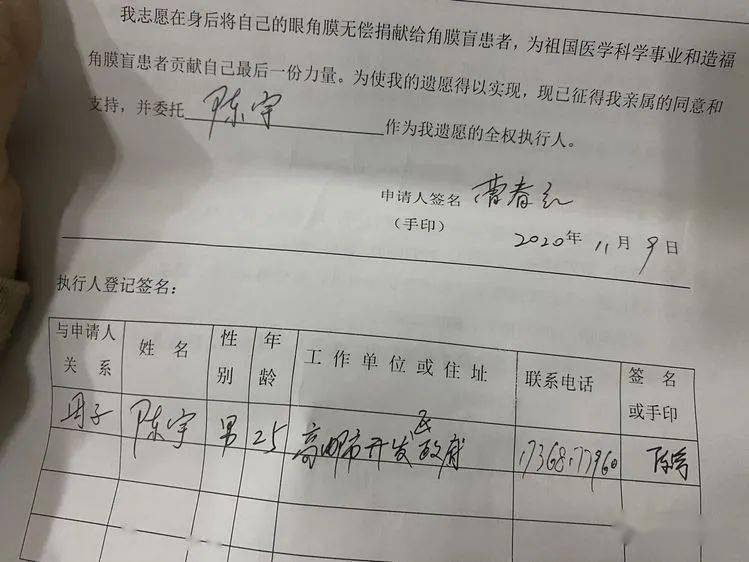 我志愿在身后将自己的眼角膜无偿捐献给角膜盲患者，为祖国医学科学事业和造福
角膜盲患者贡献自己最后一份力量。为使我的遗愿得以实现，现已征得我亲属的同意和
支持，并委托 陈宇 作为我遗愿的全权执行人。
申请人签名 曹春红
（手印）
2020年 11月 9日
执行人登记签名：
与申请人关系 姓名 性别 年龄 工作单位或住址 联系电话 签名或手印
陈宇 男 25 高邮市开发区政府 陈宇